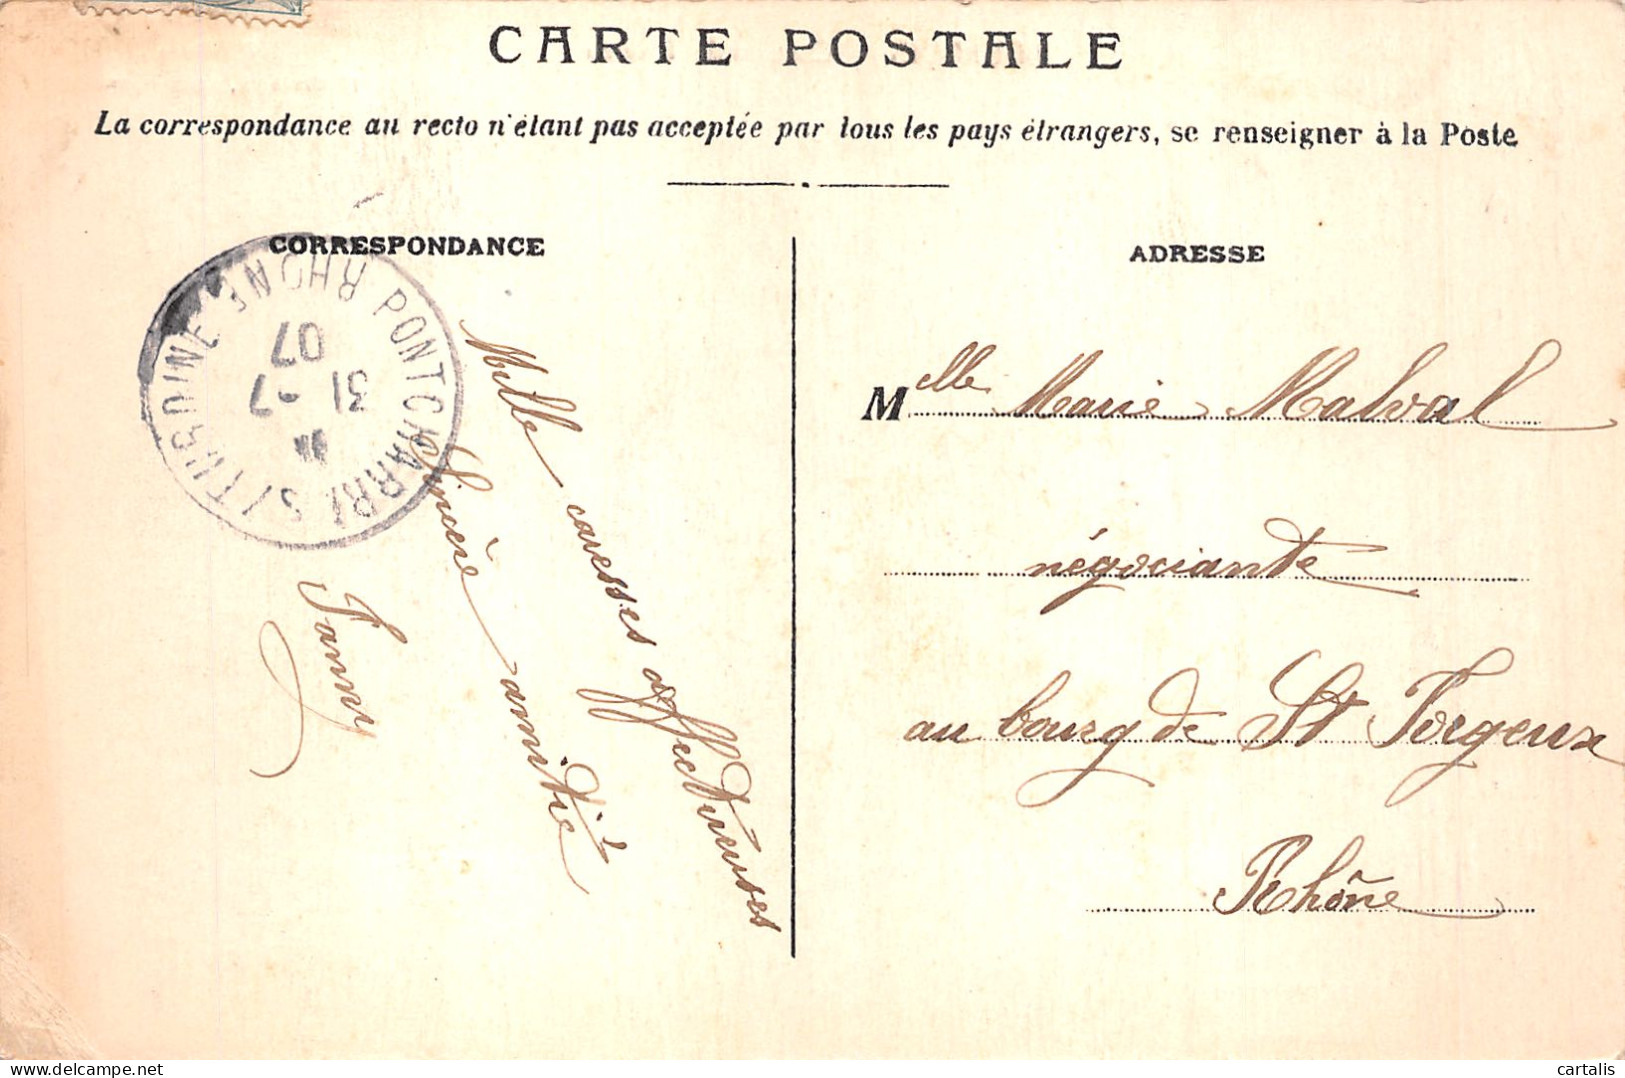 CARTE POSTALE
La correspondance au recto n'étant pas acceptée par tous les pays étrangers, se renseigner à la Poste
CORRESPONDANCE
ADRESSE
PONTCHARRA S/TURDINE RHONE
31 -7
07
Mille caresses affectueuses
Sincère amitié
Fanny
Melle Marie Malval
négociante
au bourg de St Forgeux
Rhône
delcampe.net
cartalis